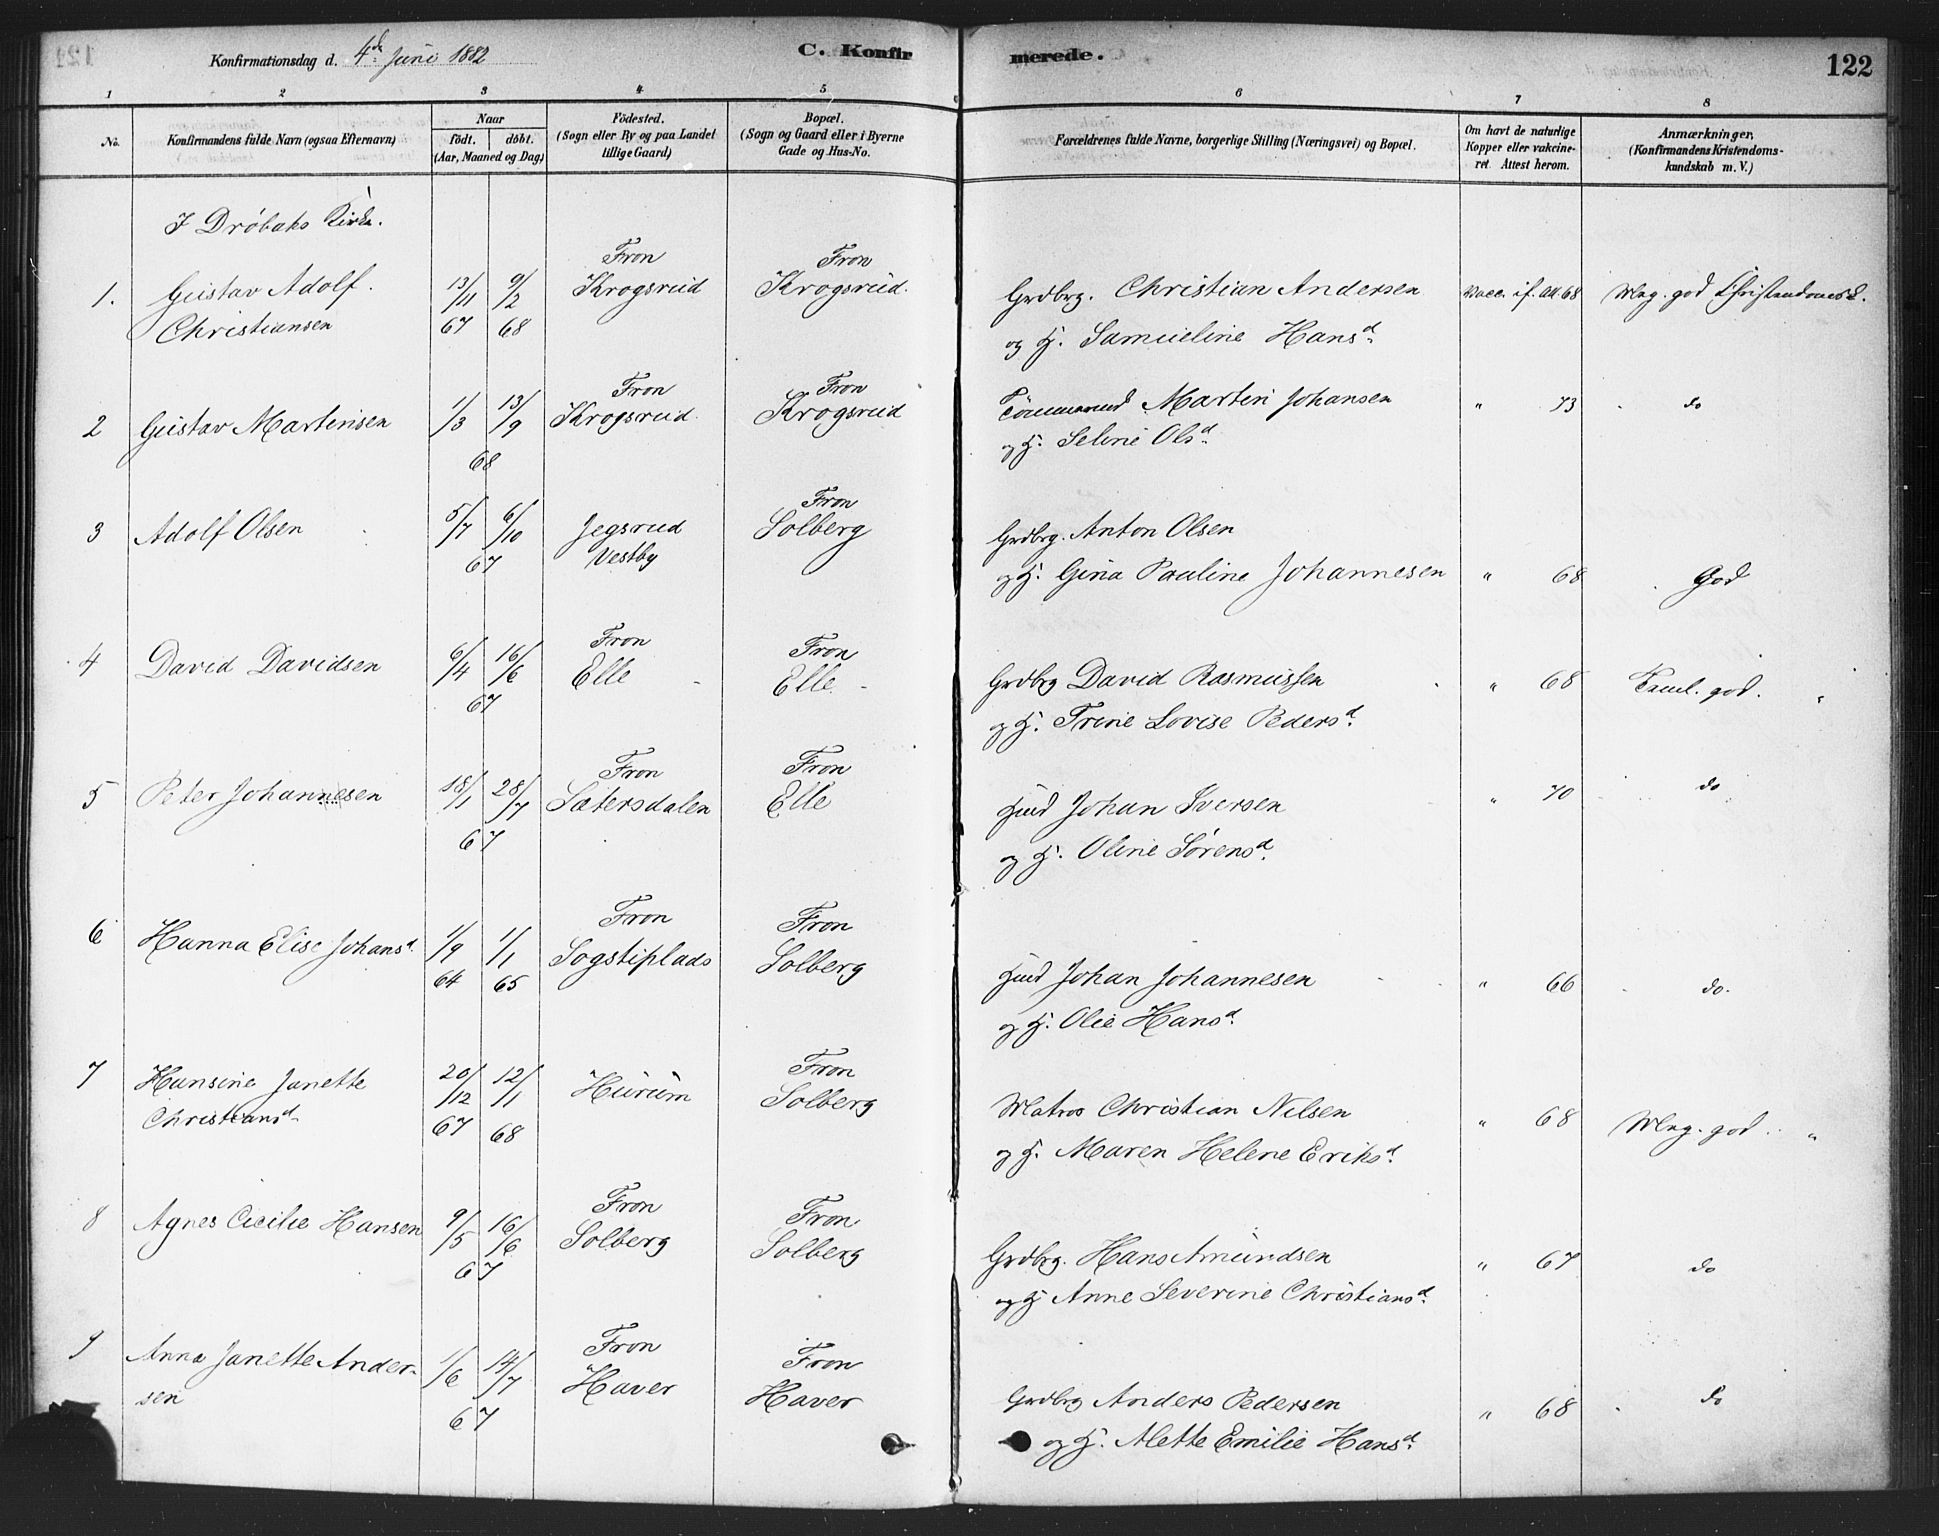 Konfirmationsdag d. 4de Juni 1882
C. Konfir
merede.
122
1 2 3 4 5 6 7 8
No.
Konfirmandens fulde Navn (ogsaa Efternavn)
Naar
födt. döbt.
(Aar, Maaned og Dag)
Födested.
(Sogn eller By og paa Landet
tillige Gaard)
Bopæl.
(Sogn og Gaard eller i Byerne
Gade og Hus-No.
Forældrenes fulde Navne, borgerlige Stilling (Næringsvei) og Bopæl.
Om havt de naturlige
Kopper eller vakcine-
ret. Attest herom.
Anmærkninger,
(Konfirmandens Kristendoms-
kundskab m. V.)
I Drøbaks Kirke.
1. Gustav Adolf Christiansen
13/11 67 9/2 68
Fron Krogsrud
Fron Krogsrud.
Grdbrg. Christian Andersen
og H. Samueline Hansd.
Vacc. if. Att 68
Meg. god Christendomsk.
2 Gustav Martinsen
1/3 13/9 68
Fron Krogsrud.
Fron Krogsrud
Tømmermd Martin Johansen
og H. Seline Olsd.
" 73
do
3 Adolf Olsen
5/7 6/10 67
Jegsrud Vestby
Fron Solberg
Grdbrg. Anton Olsen
og H. Gina Pauline Johannesen
" 68
God
4 David Davidsen
6/4 16/6 67
Fron Elle
Fron Elle.
Grdbrg David Rasmussen
og H. Trine Lovise Pedersd.
" 68
Teml. god. "
5 Peter Johannesen
18/1 28/7 67
Fron Sætersdalen
Fron Elle
Hmd Johan Iversen
og H. Oline Sørensd.
" 70
do
6 Hanna Elise Johansd.
1/9 64 1/1 65
Fron Sogstiplads
Fron Solberg
Hmd Johan Johannesen
og H. Olie Hansd.
" 66
do.
7 Hansine Janette Christiansd.
20/12 67 12/1 68
Hurum
Fron Solberg
Matros Christian Nilsen
og H. Maren Helene Eriksd.
" 68
Meg. god. "
8 Agnes Cicilie Hansen
9/5 16/6 67
Fron Solberg
Fron Solberg
Grdbrg. Hans Amundsen
og H Anne Severine Christiansd.
" 67
do
9 Anna Janette Andersen
1/6 14/7 67
Fron Haver
Fron Haver
Grdbrg Anders Pedersen
og H. Alette Emilie Hansd.
" 68
do